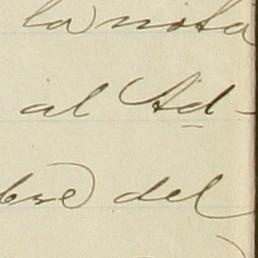 la nota
al Ad-
bre del